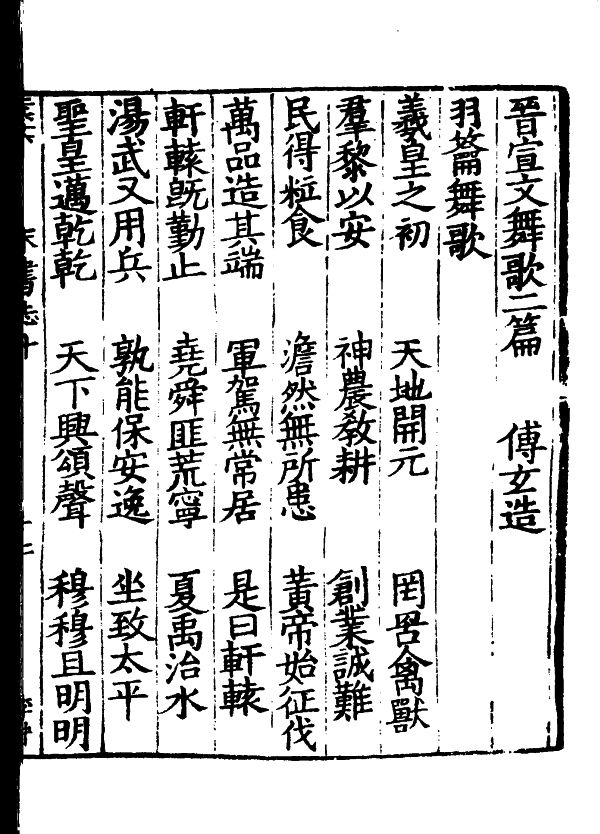 晉宣文舞歌二篇　傅玄造
羽籥舞歌
羲皇之初　天地開元　罔罟禽獸
羣黎以安　神農敎耕　創業誠難
民得粒食　澹然無所患　黃帝始征伐
萬品造其端　軍駕無常居　是曰軒轅
軒轅旣勤止　堯舜匪荒寧　夏禹治水
湯武又用兵　孰能保安逸　坐致太平
聖皇邁乾乾　天下興頌聲　穆穆且明明
書志十